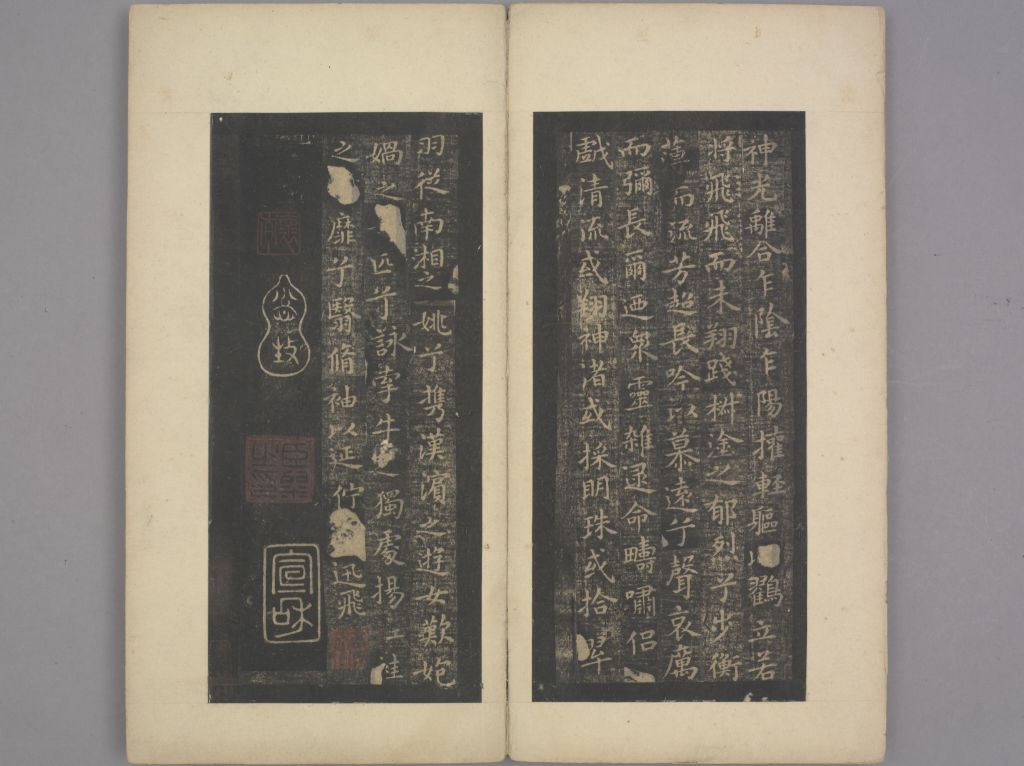 神光離合乍陰乍陽擢輕軀以鸛立若
將飛飛而未翔踐椒塗之郁烈兮步衡
薄而流芳超長吟以慕遠兮聲哀厲
而彌長爾迺衆靈雜遝命疇嘯侶
戲清流或翔神渚或採明珠或拾翠
羽從南湘之二姚兮携漢濱之遊女歎匏
媧之匹兮詠牽牛之獨處揚袿
之靡兮翳脩袖以延佇迅飛
宣和